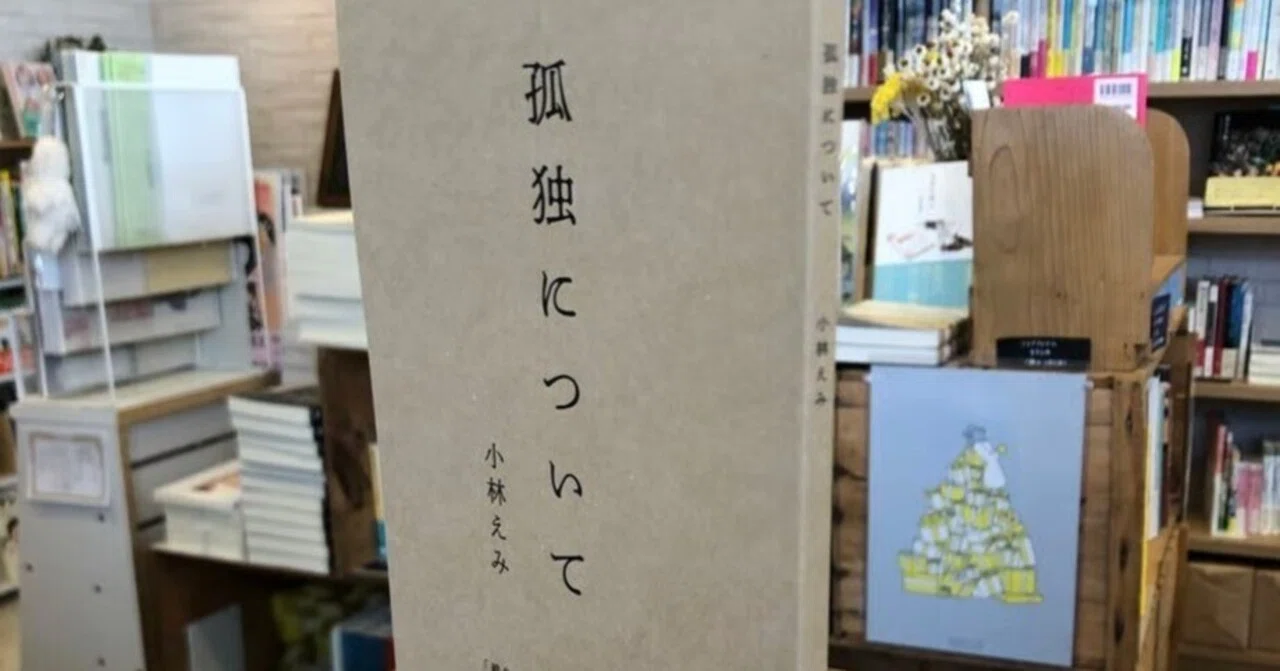 孤独について
小林えみ
孤独について
小林えみ